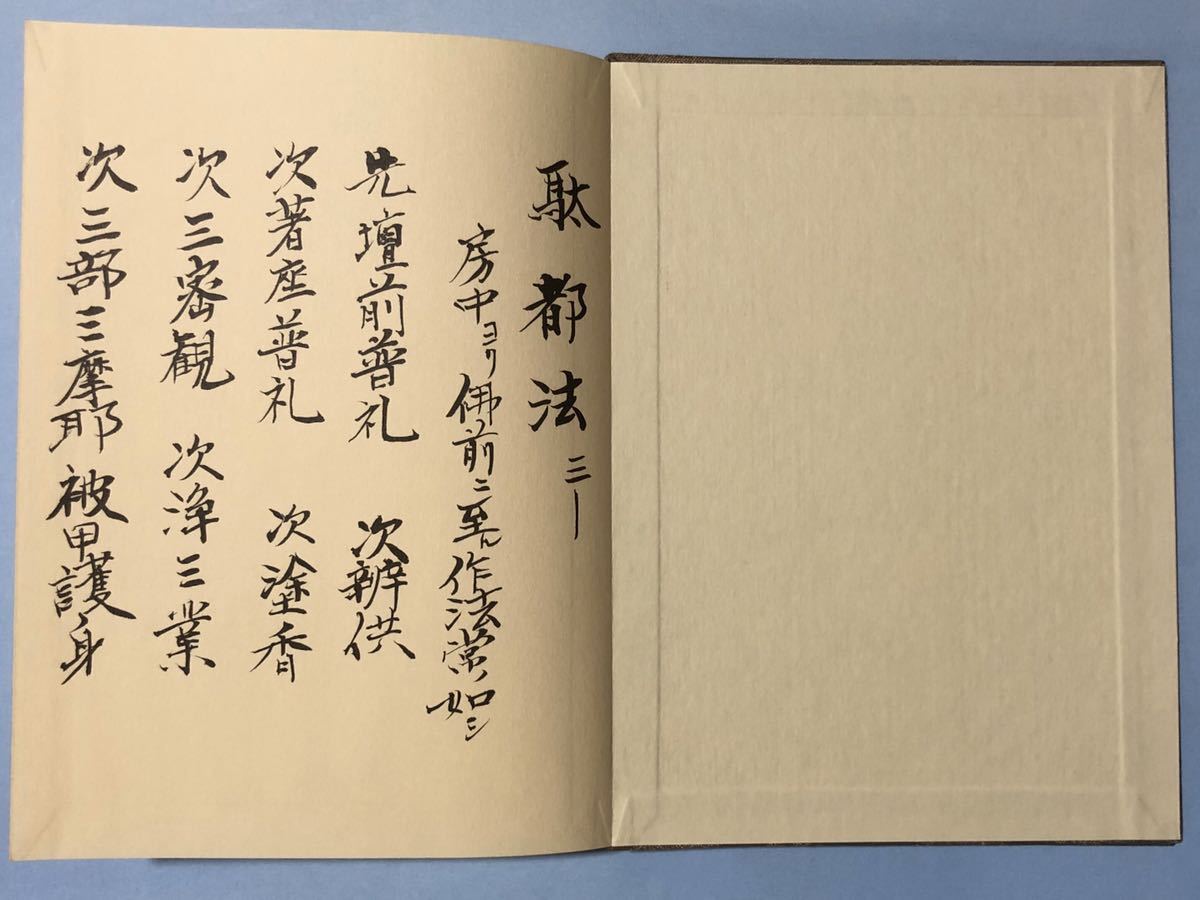 駄都法 三ー
房中ヨリ佛前ニ至ル作法常ノ如シ
先壇前普礼 次辨供
次著座普礼 次塗香
次三密観 次浄三業
次三部三摩耶 被甲護身